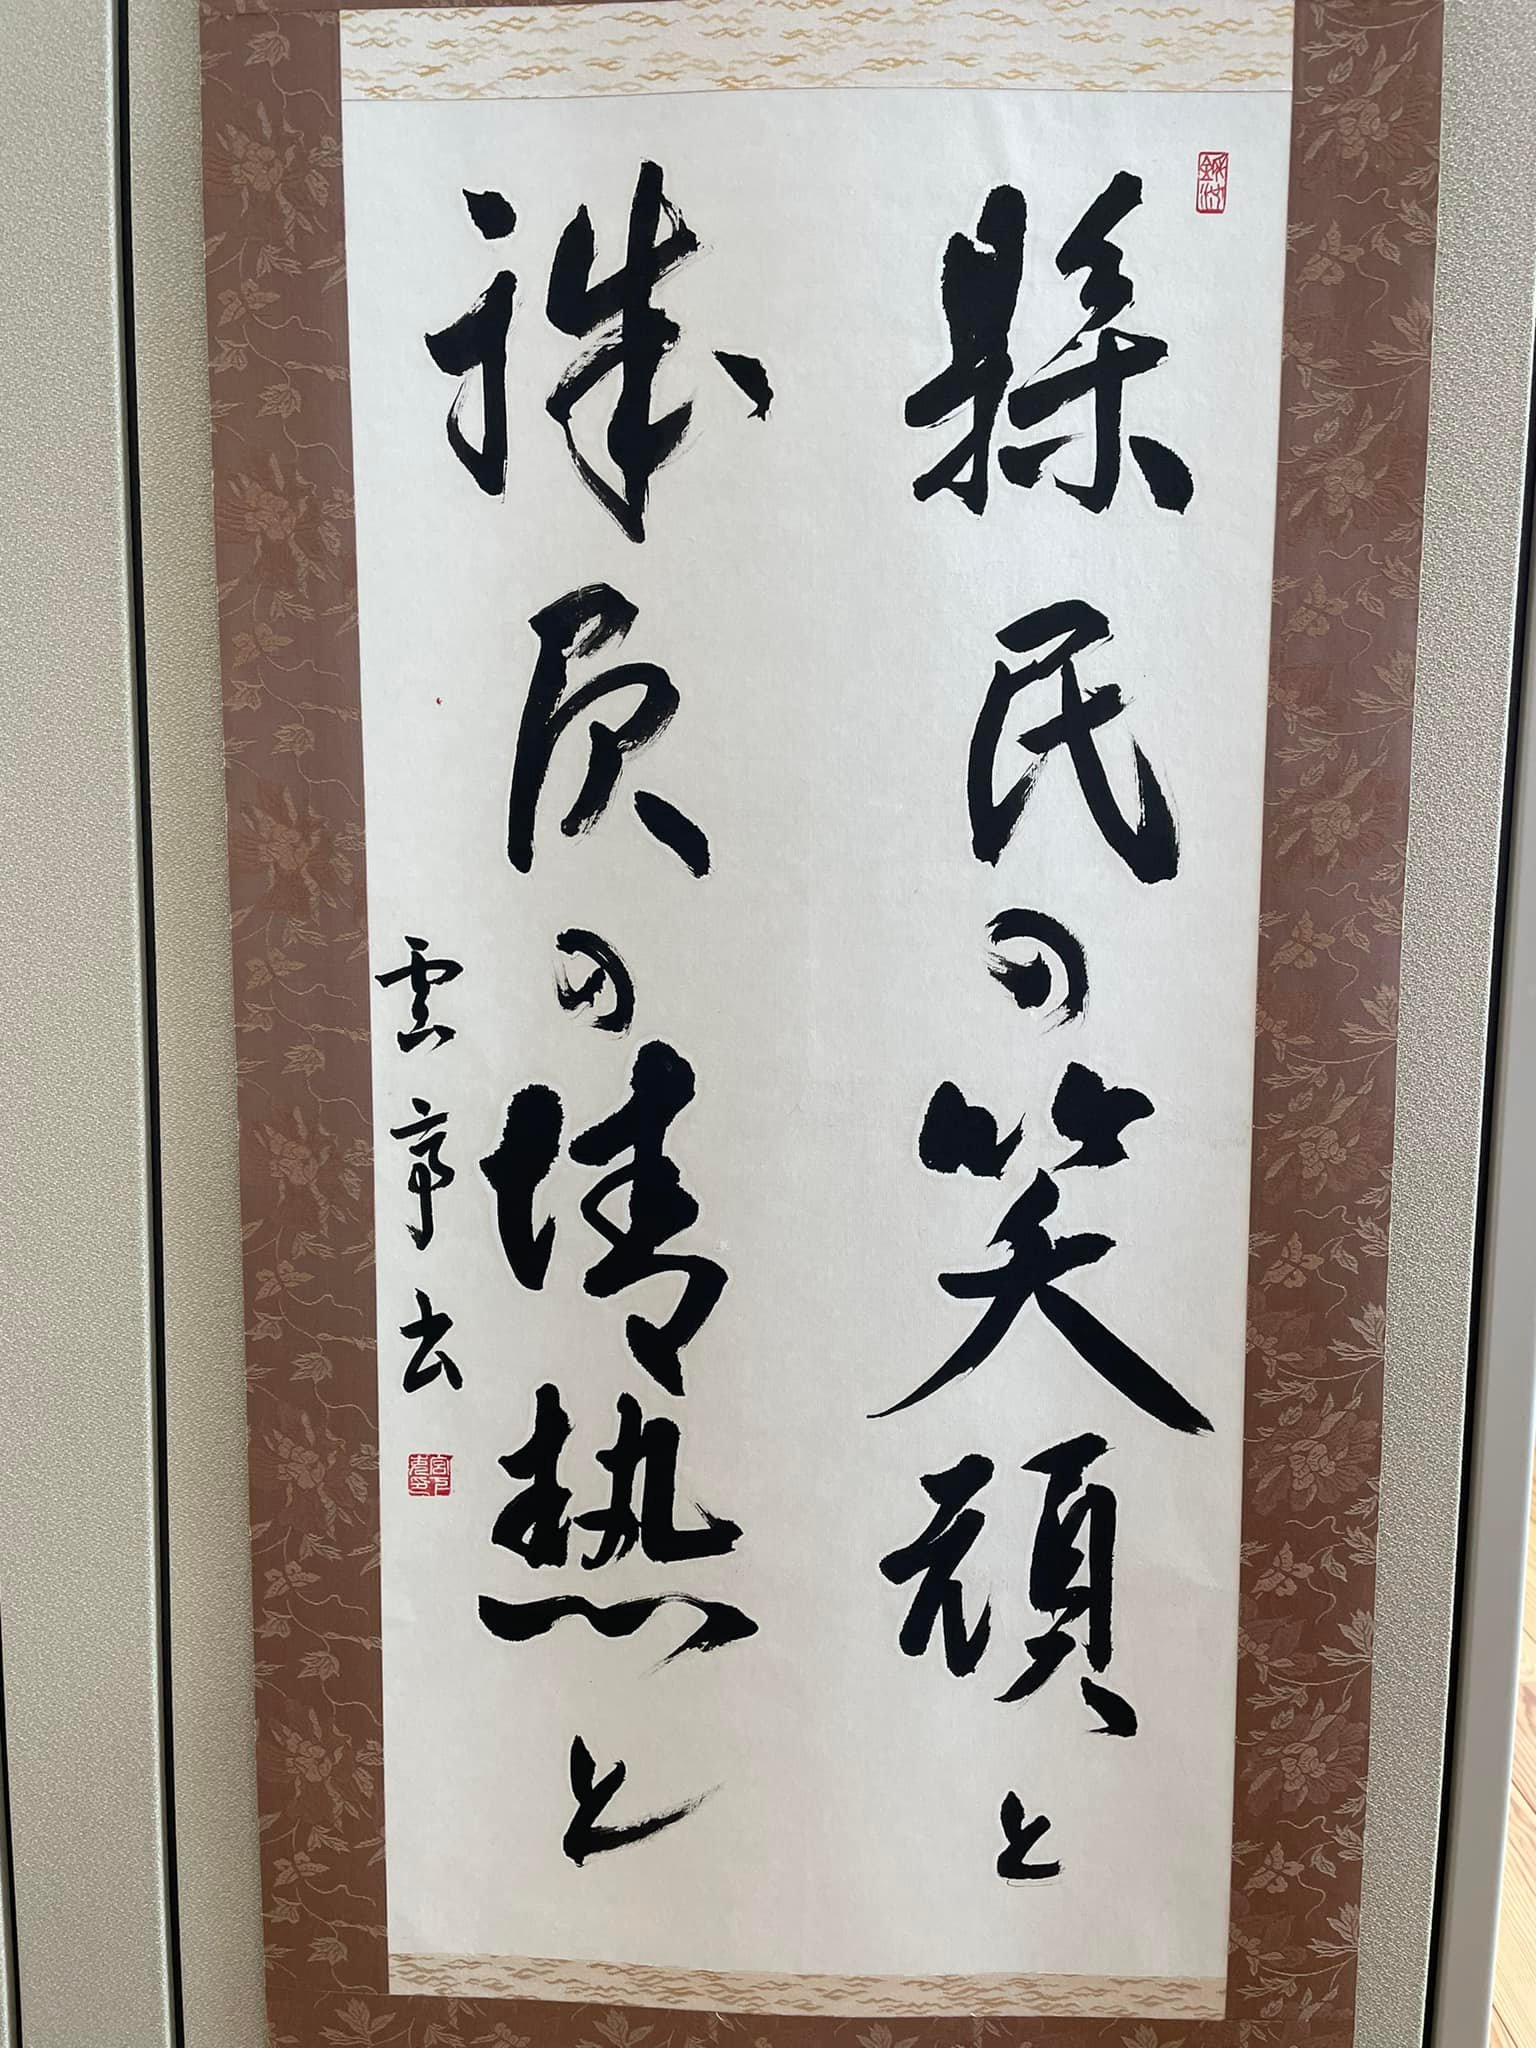 縣民の笑顔と
職員の情熱と
雲亭書